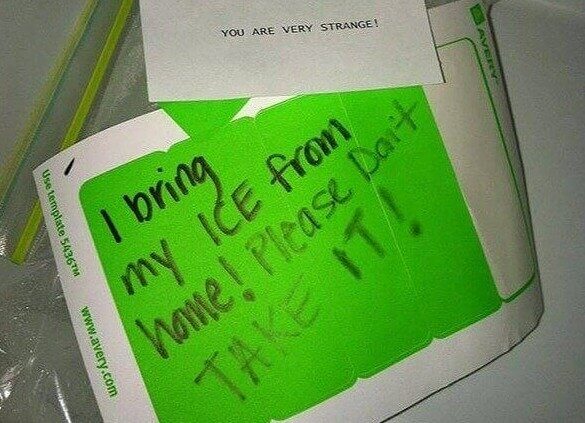 YOU ARE VERY STRANGE!
AVERY
I bring
my ICE from
home! Please Don't
TAKE IT!
Use template 5436TM
www.avery.com